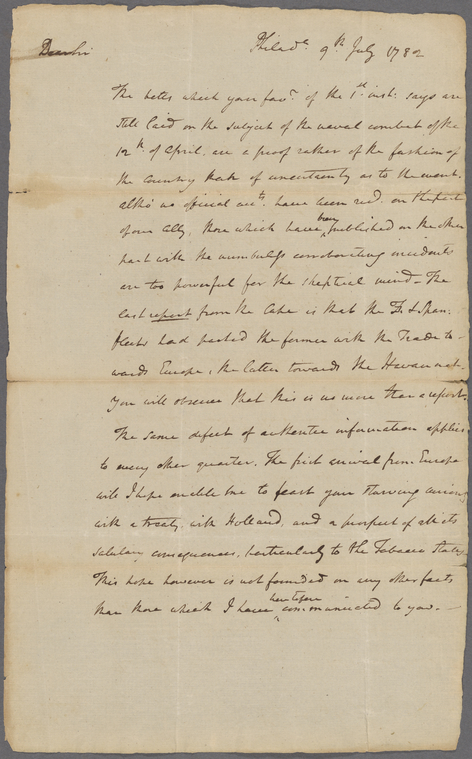 Dear Sir
Philad.ª 9th July 1782
The bettes which your favr. of the 1st inst: says are
still laid on the subject of the naval combat of the
12th. of April. are a proof rather of the fashion of
the Country than of uncertainty as to the event.
altho' no official accts. have been recd. on the part
of our Ally, those which have been published on the other
part with the numberless corroborating incidents
are too powerful for the skeptical mind. The
last report from the Cape is that the F. & Span:
fleets had parted the former with the Trade to-
wards Europe, the latter towards the Havannah.
You will observe that this is no more than a report.
The same defect of authentic information applies
to every other quarter. The first arrival from Europe
will I hope enable me to feast your starving curiosity
with a treaty with Holland, and a prospect of all its
salutary consequences, particularly to the Tobacco States.
This hope however is not founded on any other facts
than those which I have heretofore communicated to you.—